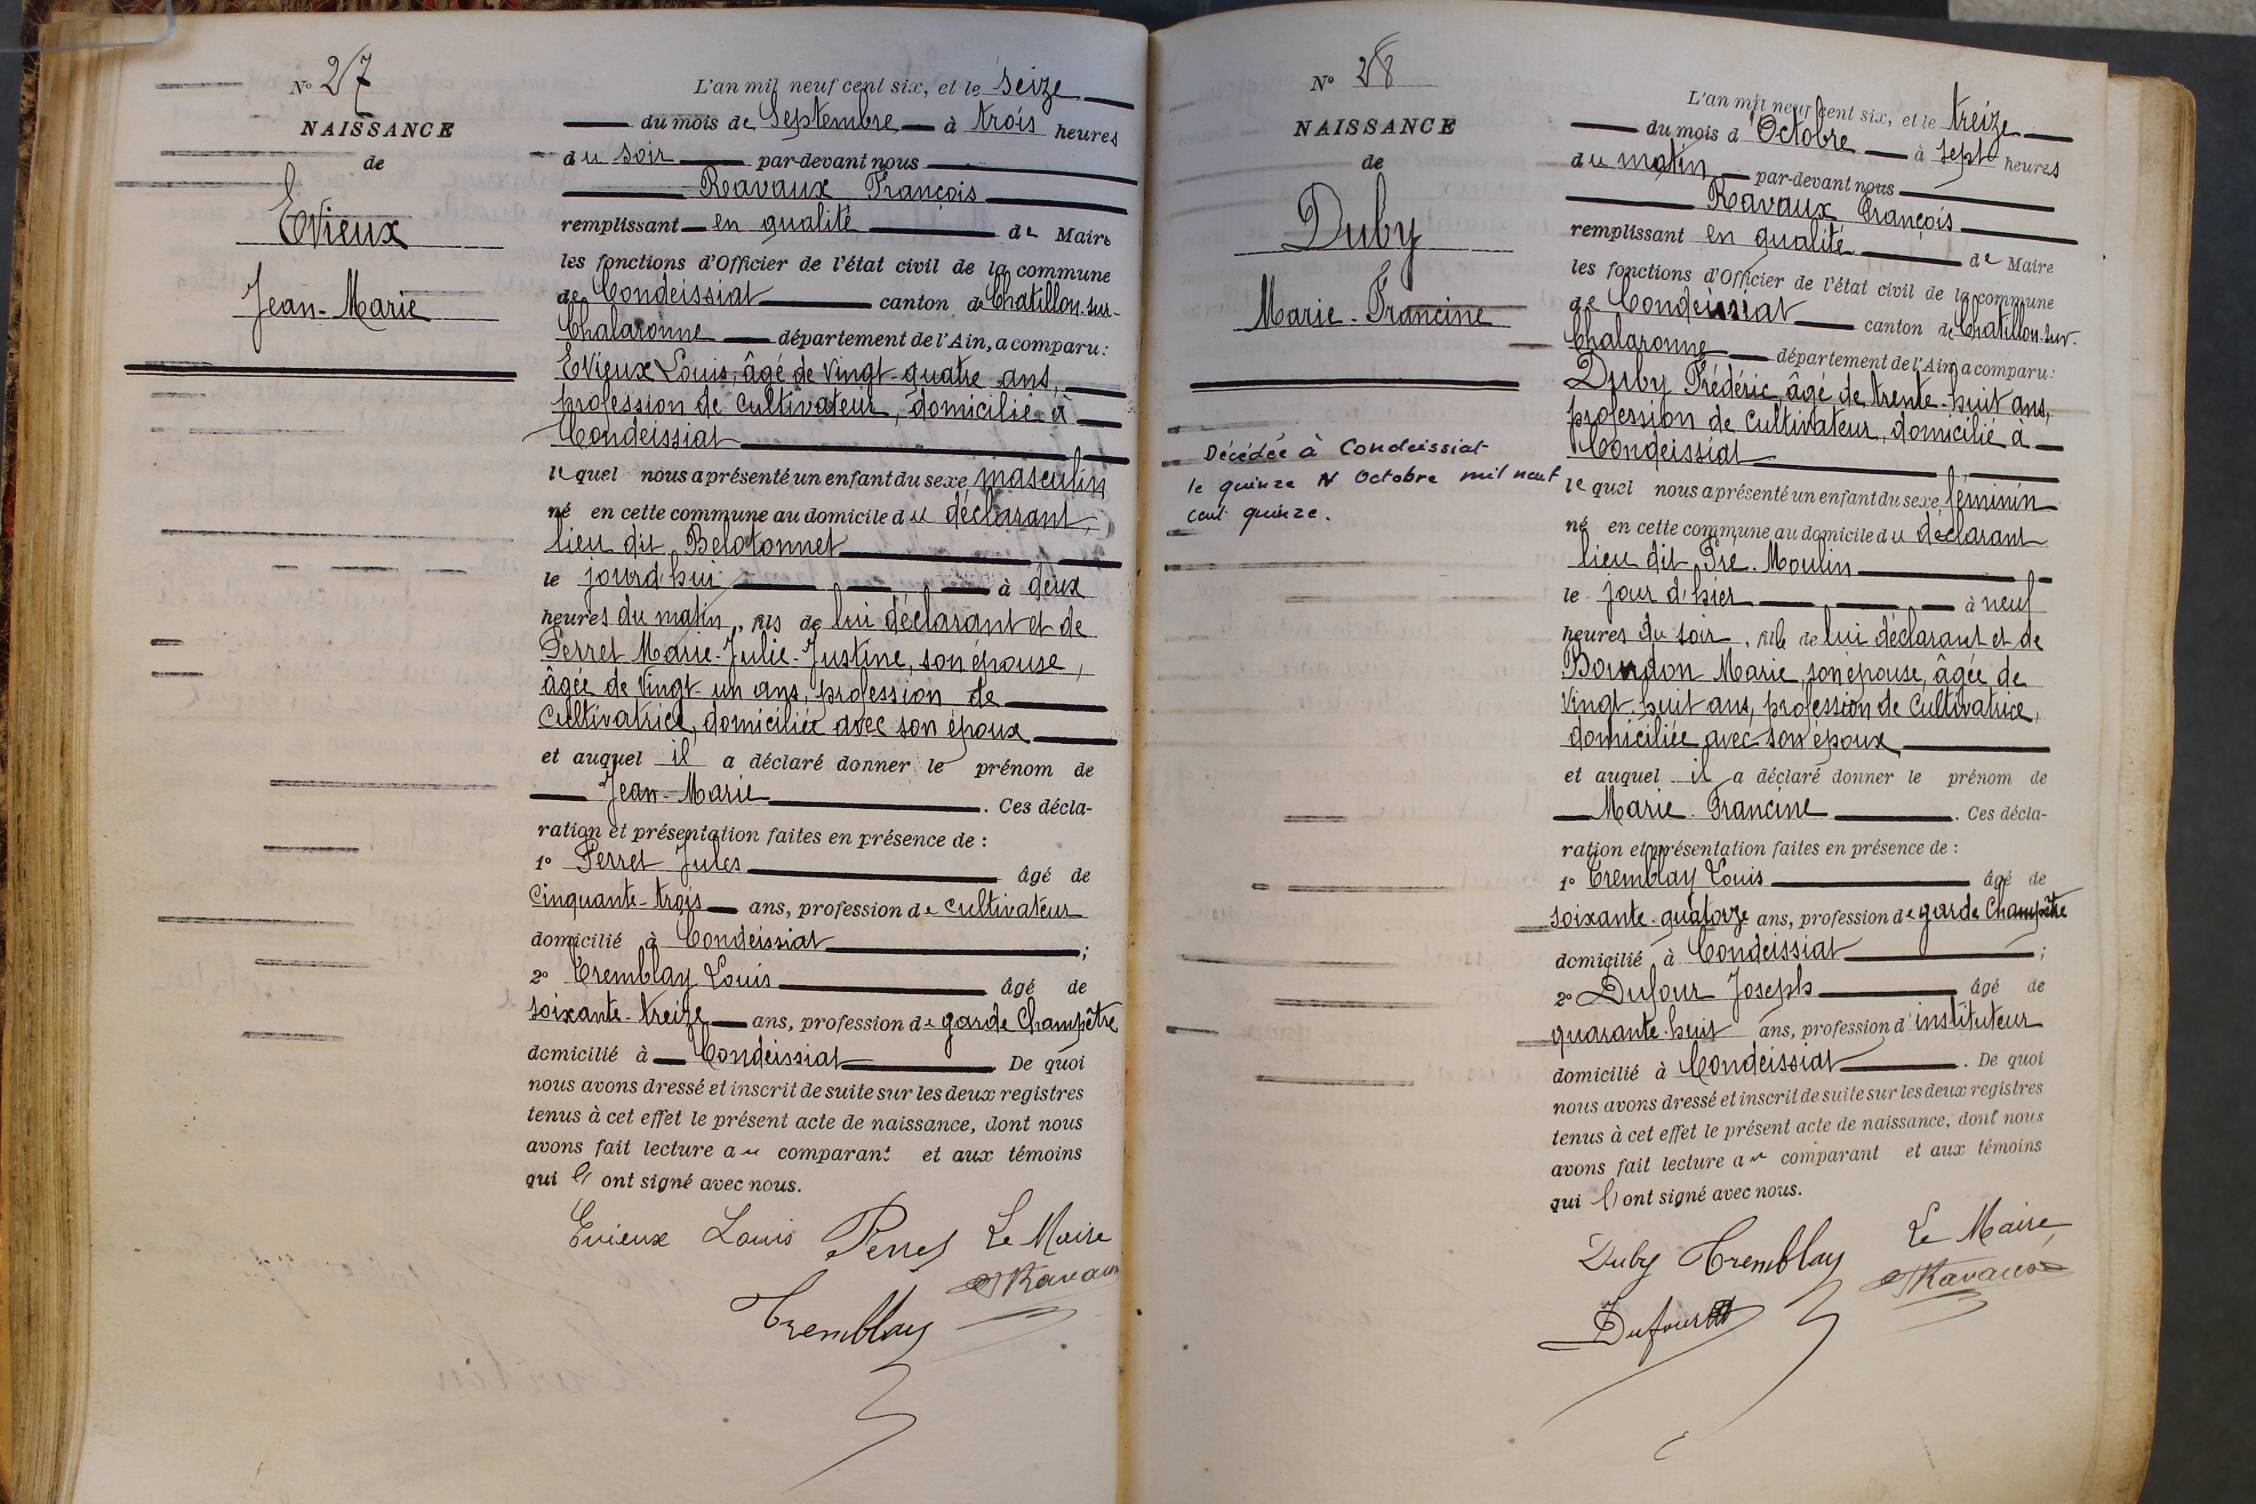 N° 27
NAISSANCE
de
Evieux
Jean-Marie
L'an mil neuf cent six, et le seize
du mois de Septembre à trois heures
du soir par-devant nous
Ravaux François
remplissant en qualité de Maire
les fonctions d'Officier de l'état civil de la commune
de Condeissiat canton de Chatillon-sur-
Chalaronne département de l'Ain, a comparu:
Evieux Louis, âgé de vingt-quatre ans,
profession de cultivateur, domicilié à
Condeissiat
lequel nous a présenté un enfant du sexe masculin
né en cette commune au domicile du déclarant,
lieu dit Belotonnet
le jourd'hui à deux
heures du matin, fils de lui déclarant et de
Perret Marie-Julie-Justine, son épouse,
âgée de vingt-un ans, profession de
cultivatrice, domiciliée avec son époux
et auquel il a déclaré donner le prénom de
Jean-Marie. Ces décla-
ration et présentation faites en présence de :
1° Perret Jules âgé de
cinquante-trois ans, profession de cultivateur
domicilié à Condeissiat;
2° Tremblay Louis âgé de
soixante-treize ans, profession de garde Champêtre
domicilié à Condeissiat De quoi
nous avons dressé et inscrit de suite sur les deux registres
tenus à cet effet le présent acte de naissance, dont nous
avons fait lecture au comparant et aux témoins
qui ont signé avec nous.
Evieux Louis Perret Le Maire
Ravaux
Tremblay
N° 28
NAISSANCE
de
Duby
Marie-Francine
Décédée à Condeissiat
le quinze Octobre mil neuf
cent quinze.
L'an mil neuf cent six, et le treize
du mois d'Octobre à sept heures
du matin par-devant nous
Ravaux François
remplissant en qualité de Maire
les fonctions d'Officier de l'état civil de la commune
de Condeissiat canton de Chatillon-sur-
Chalaronne département de l'Ain, a comparu:
Duby Frédéric, âgé de trente-huit ans,
profession de cultivateur, domicilié à
Condeissiat
lequel nous a présenté un enfant du sexe féminin
né en cette commune au domicile du déclarant
lieu dit Pré-Moulin
le jour d'hier à neuf
heures du soir, fille de lui déclarant et de
Bourdon Marie, son épouse, âgée de
vingt-huit ans, profession de cultivatrice,
domiciliée avec son époux
et auquel il a déclaré donner le prénom de
Marie-Francine. Ces décla-
ration et présentation faites en présence de :
1° Tremblay Louis âgé de
soixante-quatorze ans, profession de garde Champêtre
domicilié à Condeissiat;
2° Dufour Joseph âgé de
quarante-huit ans, profession d'instituteur
domicilié à Condeissiat. De quoi
nous avons dressé et inscrit de suite sur les deux registres
tenus à cet effet le présent acte de naissance, dont nous
avons fait lecture au comparant et aux témoins
qui ont signé avec nous.
Duby Tremblay Le Maire,
Ravaux
Dufour